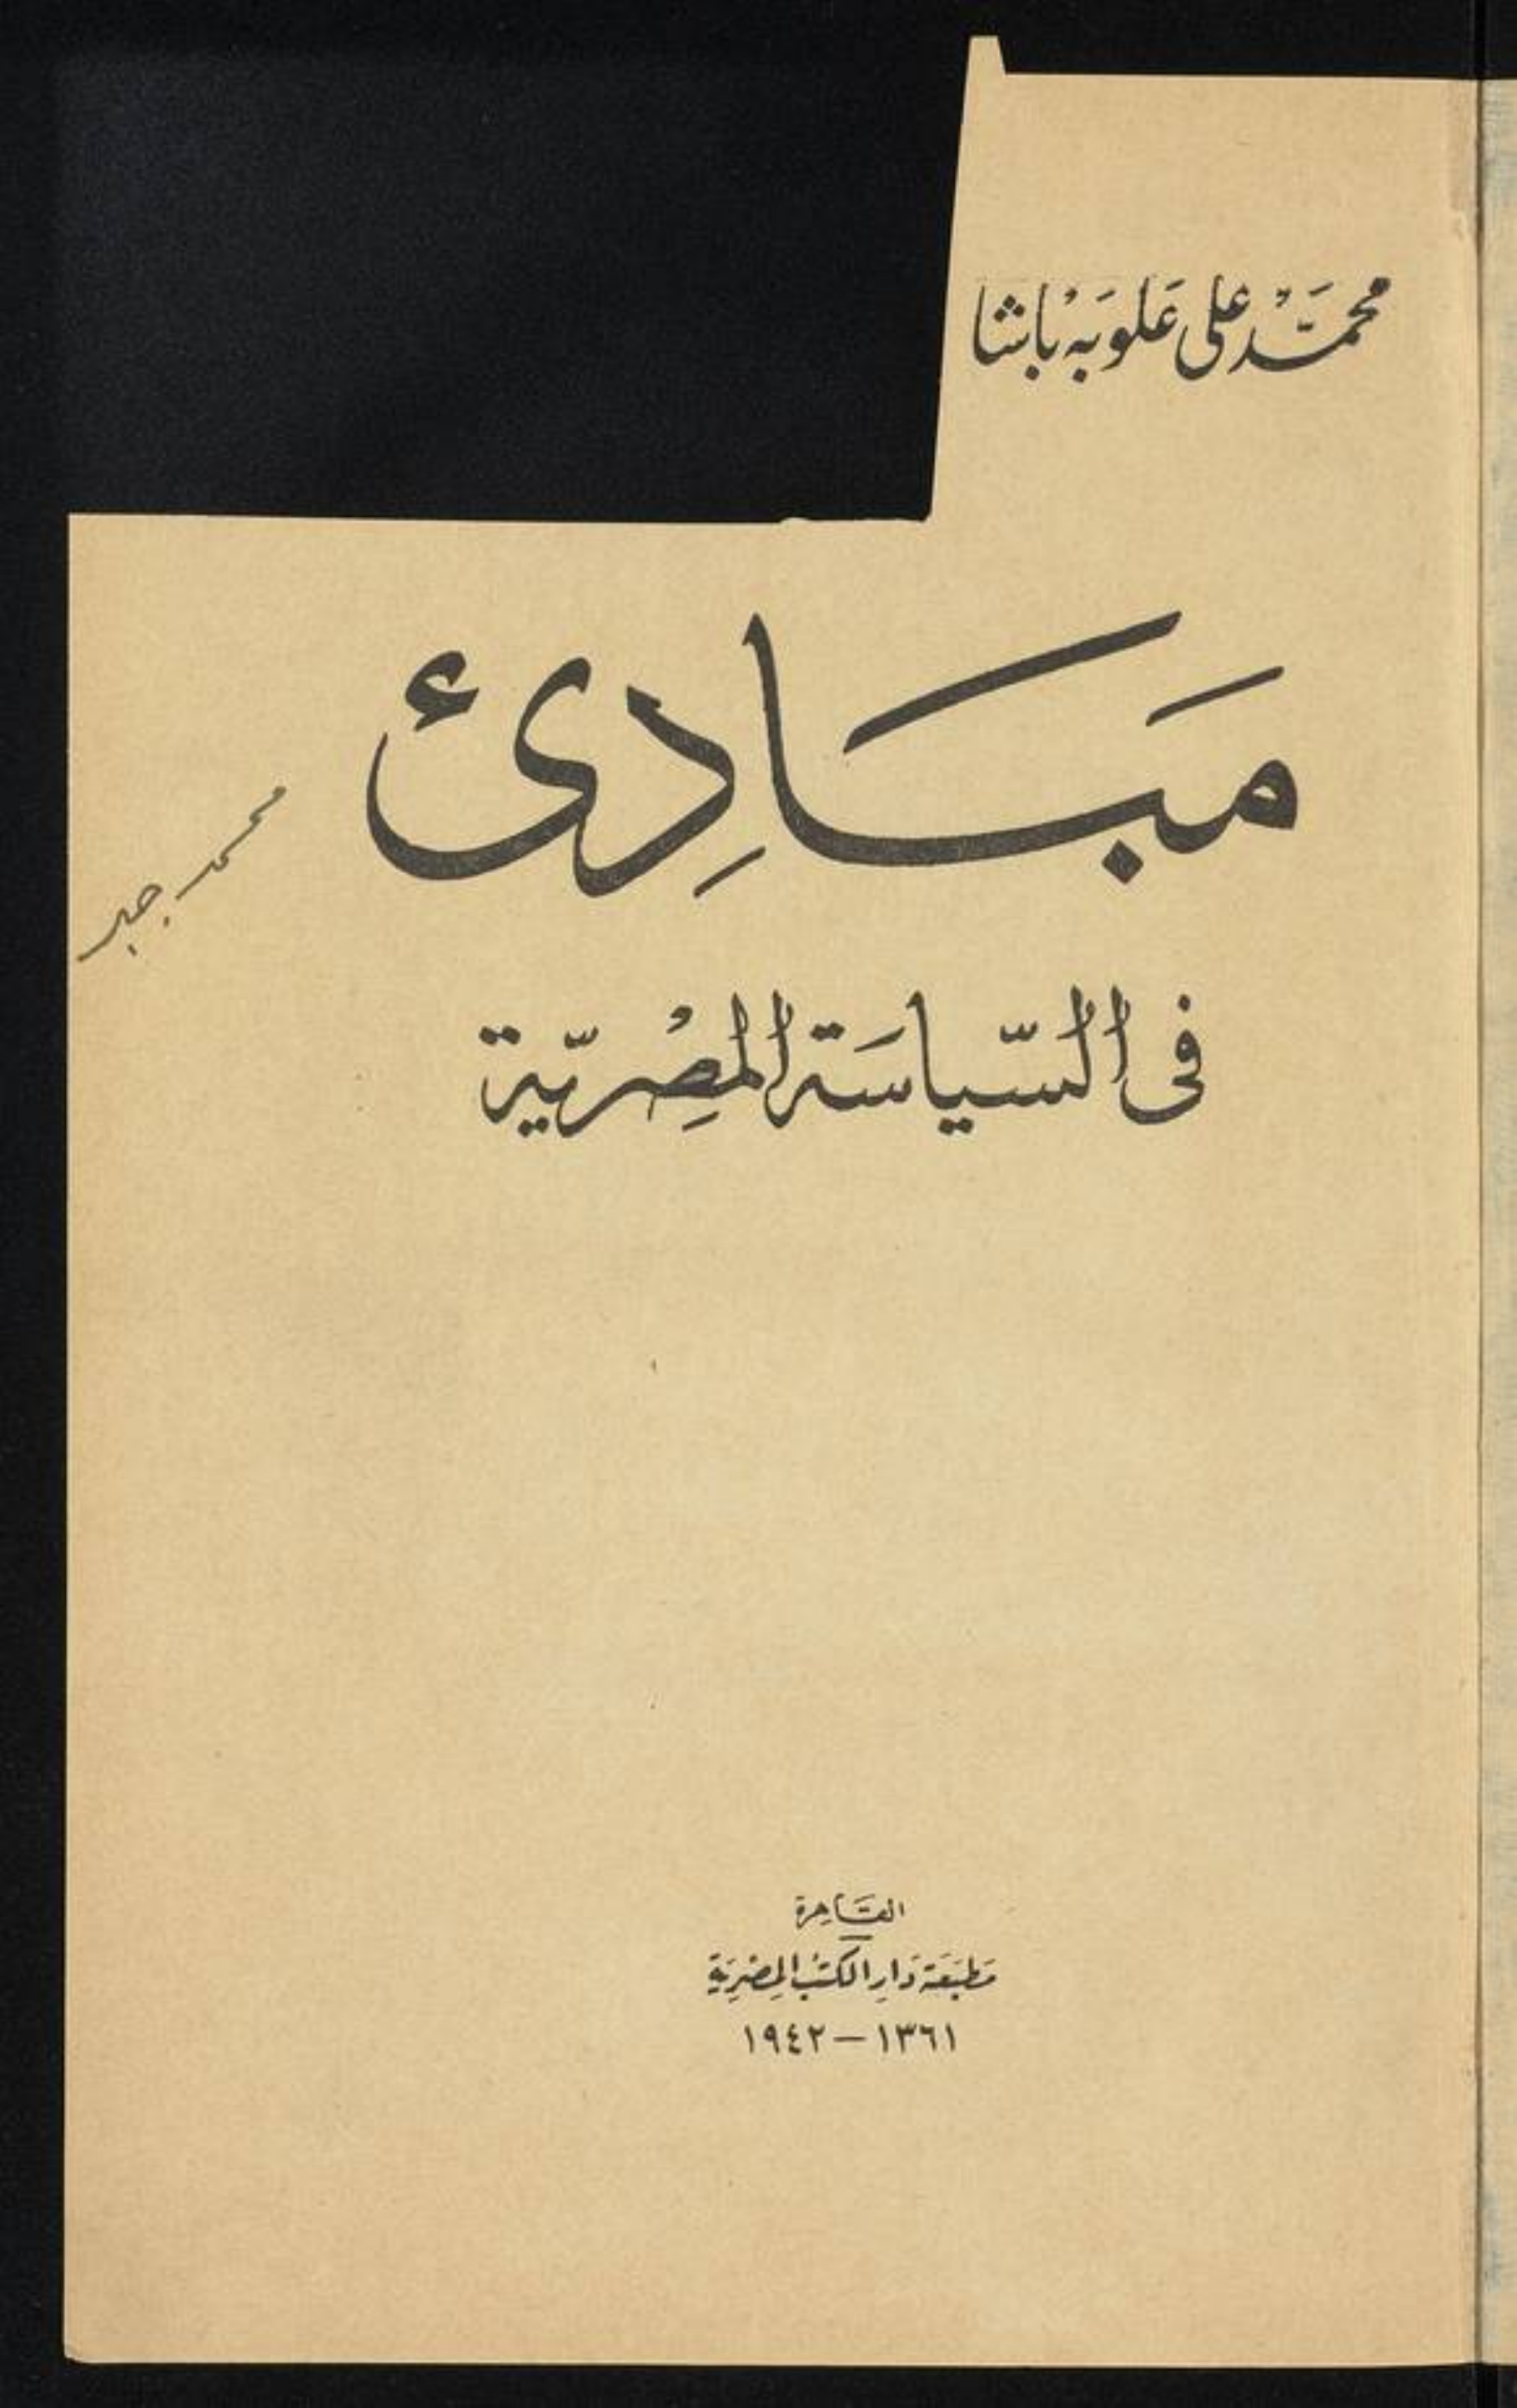 محمَّد على عَلوبَه بَاشا
مَبَادِئ
فى السّياسَة المِصْريّة
محمد جبر
القَاهِرة
مَطبَعَة دَار الكتُب المِصْريَة
١٣٦١ – ١٩٤٢